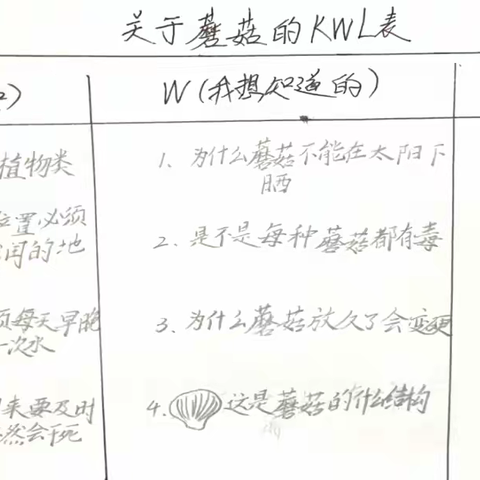 关于蘑菇的KWL表
W(我想知道的)
植物类
位置必须
的地
每天早晚
一次水
来要及时
然会干死
1、为什么蘑菇不能在太阳下
晒
2、是不是每种蘑菇都有毒
3、为什么蘑菇放久了会变
4、这是蘑菇的什么结构